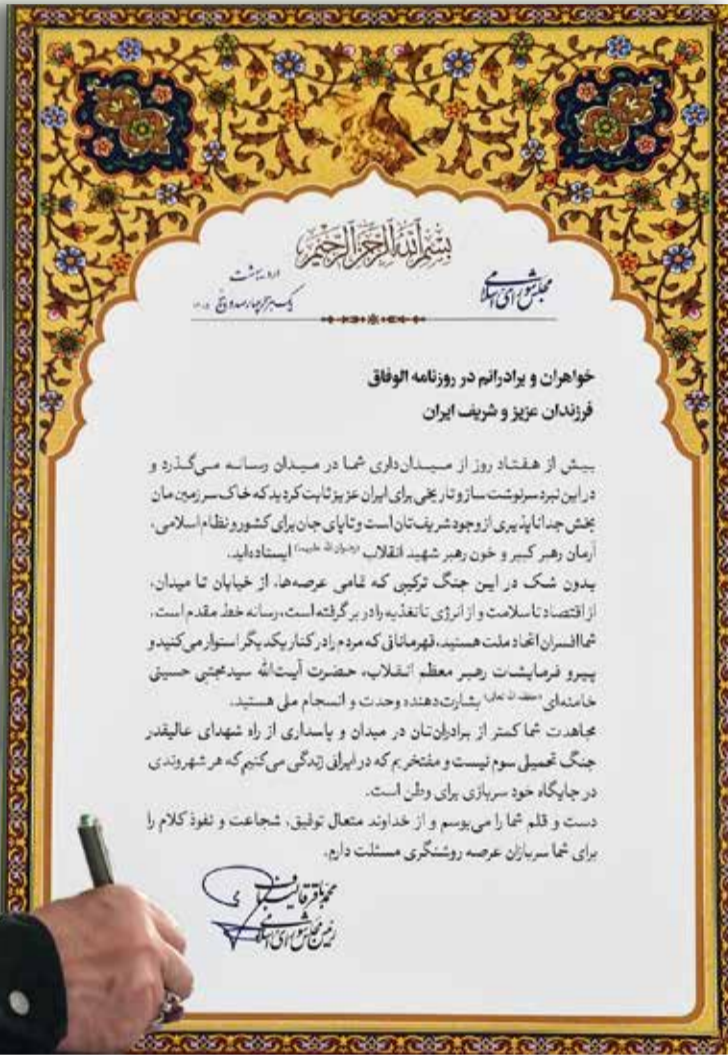 بسم الله الرحمن الرحیم
مجلس شورای اسلامی
اردیبهشت
یک هزار و چهارصد و پنج ۱۴۰۵
خواهران و برادرانم در روزنامه الوفاق
فرزندان عزیز و شریف ایران
بیش از هفتاد روز از میدان‌داری شما در میدان رسانه می‌گذرد و
در این نبرد سرنوشت ساز و تاریخی برای ایران عزیز ثابت کردید که خاک سرزمین‌مان
بخش جداناپذیری از وجود شریف‌تان است و تا پای جان برای کشور و نظام اسلامی،
آرمان رهبر کبیر و خون رهبر شهید انقلاب (رضوان الله علیهما) ایستاده‌اید.
بدون شک در این جنگ ترکیبی که تمامی عرصه‌ها، از خیابان تا میدان،
از اقتصاد تا سلامت و از انرژی تا تغذیه را در بر گرفته است، رسانه خط مقدم است.
شما افسران اتحاد ملت هستید، قهرمانانی که مردم را در کنار یکدیگر استوار می‌کنید و
پیرو فرمایشات رهبر معظم انقلاب، حضرت آیت‌الله سیدمجتبی حسینی
خامنه‌ای (حفظه الله تعالی) بشارت‌دهنده وحدت و انسجام ملی هستید.
مجاهدت شما کمتر از برادران‌تان در میدان و پاسداری از راه شهدای عالیقدر
جنگ تحمیلی سوم نیست و مفتخریم که در ایرانی زندگی می‌کنیم که هر شهروندی
در جایگاه خود سربازی برای وطن است.
دست و قلم شما را می‌بوسم و از خداوند متعال توفیق، شجاعت و نفوذ کلام را
برای شما سربازان عرصه روشنگری مسئلت دارم.
محمدباقر قالیباف
رئیس مجلس شورای اسلامی